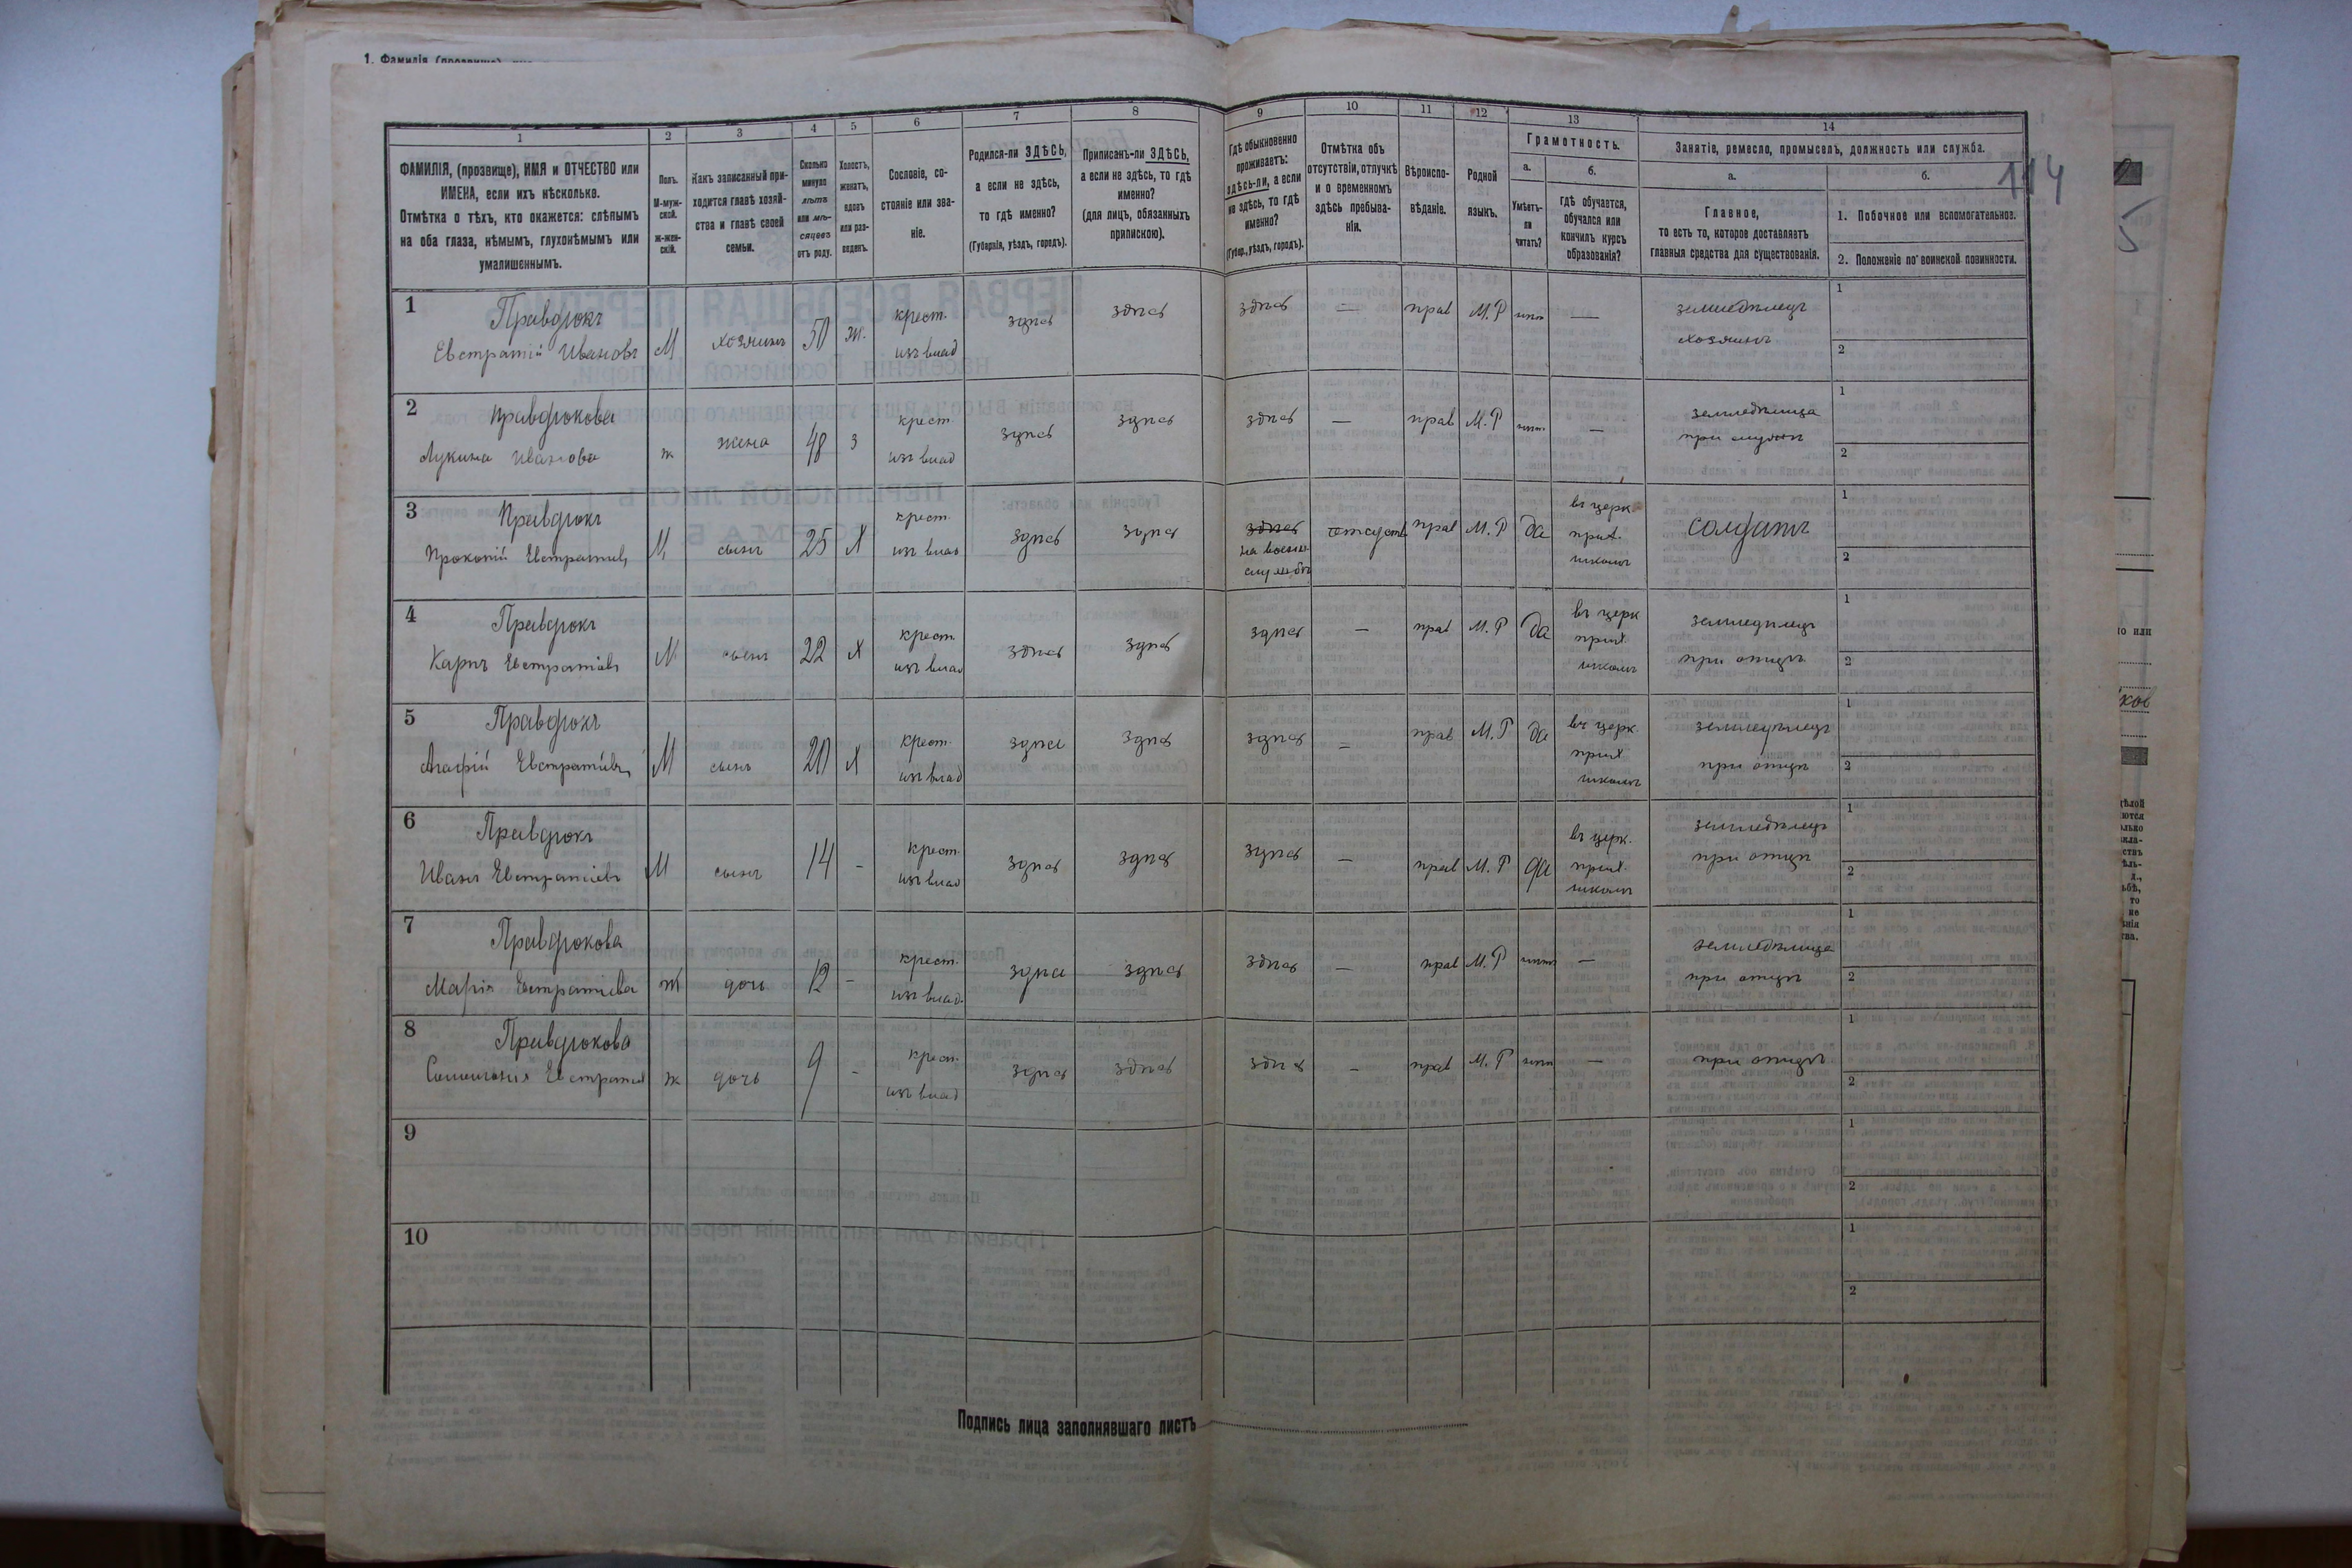 1. Фамилія (прозвище)
1 2 3 4 5 6 7 8 9 10 11 12 13 14
ФАМИЛІЯ, (прозвище), ИМЯ и ОТЧЕСТВО или
ИМЕНА, если ихъ нѣсколько.
Отмѣтка о тѣхъ, кто окажется: слѣпымъ
на оба глаза, нѣмымъ, глухонѣмымъ или
умалишеннымъ.
Полъ.
М-муж-
ской.
Ж-жен-
скій.
Какъ записанный при-
ходится главѣ хозяй-
ства и главѣ своей
семьи.
Сколько
минуло
лѣтъ
или мѣ-
сяцевъ
отъ роду.
Холостъ,
женатъ,
вдовъ
или раз-
веденъ.
Сословіе, со-
стояніе или зва-
ніе.
Родился-ли ЗДѢСЬ,
а если не здѣсь,
то гдѣ именно?
(Губернія, уѣздъ, городъ).
Приписанъ-ли ЗДѢСЬ,
а если не здѣсь, то гдѣ
именно?
(для лицъ, обязанныхъ
припискою).
Гдѣ обыкновенно
проживаетъ:
здѣсь-ли, а если
не здѣсь, то гдѣ
именно?
(Губер., уѣздъ, городъ).
Отмѣтка объ
отсутствіи, отлучкѣ
и о временномъ
здѣсь пребыва-
ніи.
Вѣроиспо-
вѣданіе.
Родной
языкъ.
Грамотность.
а.
Умѣетъ-
ли
читать?
б.
гдѣ обучается,
обучался или
кончилъ курсъ
образованія?
Занятіе, ремесло, промыселъ, должность или служба.
а.
Главное,
то есть то, которое доставляетъ
главныя средства для существованія.
б.
1. Побочное или вспомогательное.
2. Положеніе по воинской повинности.
114
1
Правдюкъ
Евстратій Ивановъ
М хозяинъ 50 ж.
крест.
изъ влад
здѣсь здѣсь здѣсь — прав М.Р нѣтъ —
земледѣлецъ
хозяинъ
1
2
2
Правдюкова
Лукина Иванова
ж жена 48 з
крест.
изъ влад
здѣсь здѣсь здѣсь — прав М.Р нѣтъ —
земледѣлица
при мужѣ
1
2
3
Правдюкъ
Прокопій Евстратіев
М сынъ 25 Х
крест.
изъ влад
здѣсь здѣсь
здѣсь
на военн.
службѣ
отсутств прав М.Р да
въ церк.
прих.
школѣ
солдатъ
1
2
4
Правдюкъ
Карпъ Евстратіевъ
М сынъ 22 Х
крест.
изъ влад
здѣсь здѣсь здѣсь — прав М.Р да
въ церк
прих.
школѣ
земледѣлецъ
при отцѣ
1
2
5
Правдюкъ
Агафій Евстратіевъ
М сынъ 20 Х
крест.
изъ влад
здѣсь здѣсь здѣсь — прав М.Р да
въ церк.
прих
школѣ
земледѣлецъ
при отцѣ
1
2
6
Правдюкъ
Иванъ Евстратіевъ
М сынъ 14 -
крест.
изъ влад
здѣсь здѣсь здѣсь — прав М.Р да
въ церк.
прих.
школѣ
земледѣлецъ
при отцѣ
1
2
7
Правдюкова
Марія Евстратіева
Ж дочь 12 -
крест.
изъ влад.
здѣсь здѣсь здѣсь — прав М.Р нѣтъ —
земледѣлица
при отцѣ
1
2
8
Правдюкова
Евстратіев
ж дочь 9 -
крест.
изъ влад
здѣсь здѣсь здѣсь - прав М.Р нѣтъ —
при отцѣ
1
2
9
1
2
10
1
2
Подпись лица заполнявшаго листъ